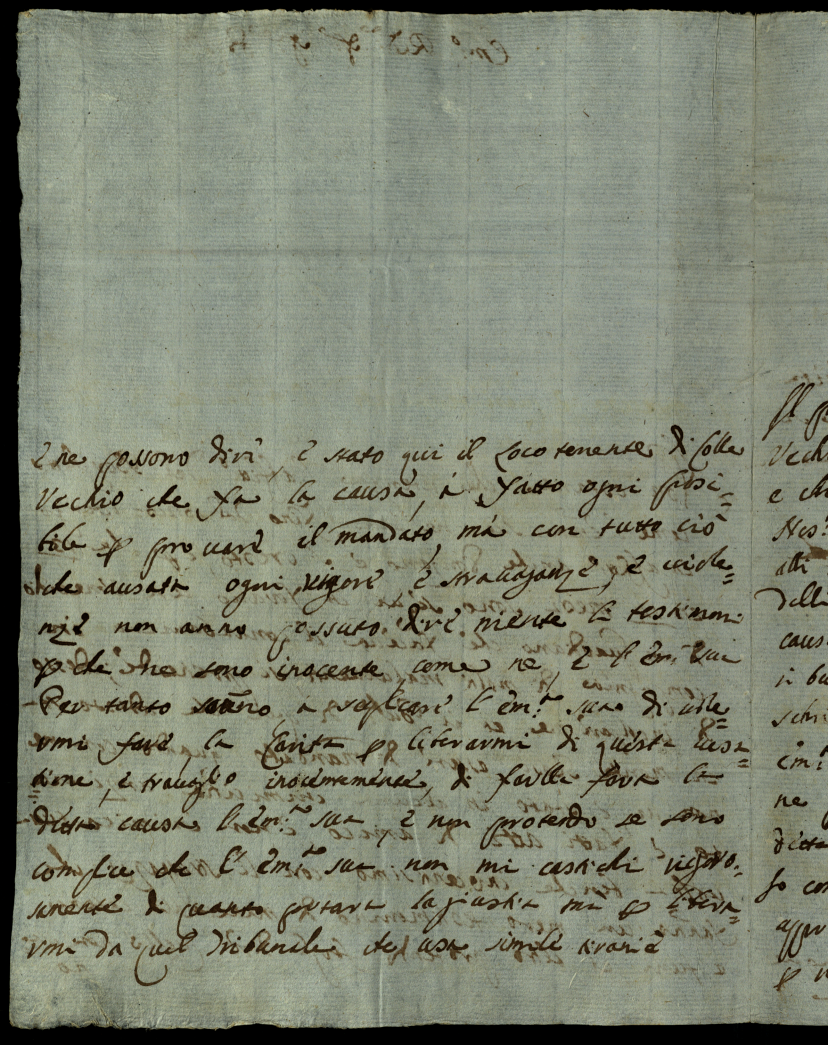 è ne possono dire è stato qui il loco tenente di Colle
Vechio che fa la causa, à fatto ogni possi=
bile p provare il mandato, mà con tutto ciò
che ausata ogni rigore, è stravaganze, è viole=
nze non anno possuto dire niente li testimoni
p che ne sono inocente come ne è l'Em.ᵃ sua
Per tanto sono à suplicare l'Em.ᵗᵃ sua di vole
rmi fare la Carità p liberarmi di questa vesa=
tione, è travaglio inocentemente, di farlla fare la
ditta causa l'Em.ᵗᵃ sua, è non protendo se sono
complice che l'Em.ᵗᵃ sua non mi castichi rigoro=
samente di quanto portara la giustia ma p libera=
rmi da quel Tribunale che usa simile tiranie
Vechi
e ch
alli
delli
caus
ne
ditta